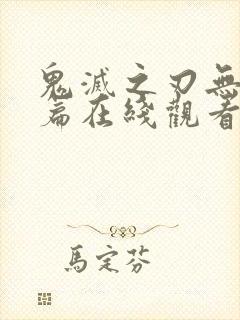 鬼滅之刃無
篇在綫觀看
馬定芬